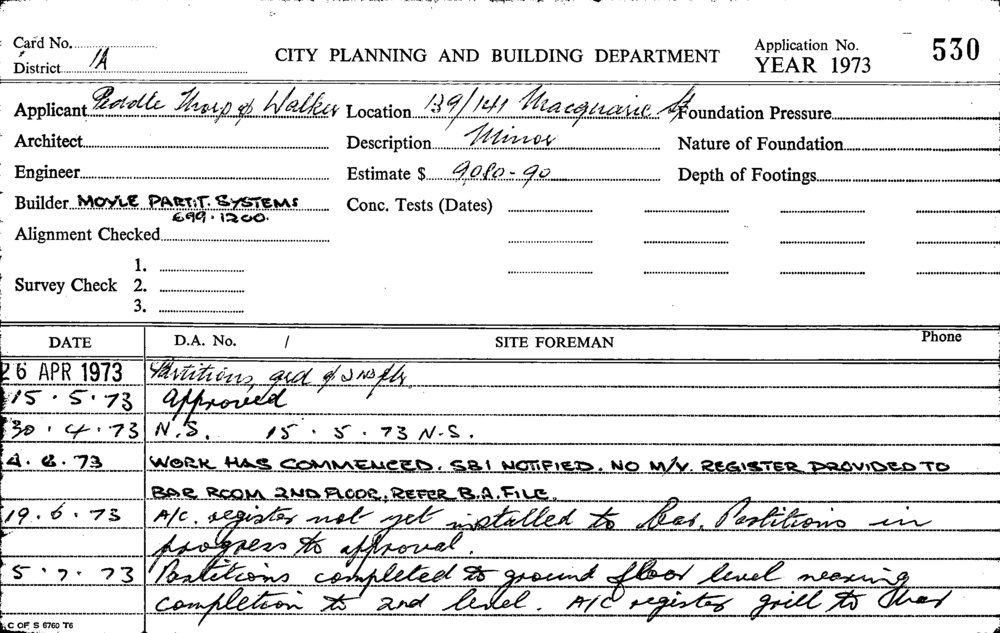 Card No.
District 1A
CITY PLANNING AND BUILDING DEPARTMENT
Application No.
YEAR 1973
530
Applicant Peddle Thorp & Walker
Location 139/141 Macquarie St
Foundation Pressure
Architect
Description Minor
Nature of Foundation
Engineer
Estimate $ 9080-90
Depth of Footings
Builder MOYLE PARTIT. SYSTEMS
699.1200.
Conc. Tests (Dates)
Alignment Checked
Survey Check
1.
2.
3.
DATE D.A. No. / SITE FOREMAN Phone
26 APR 1973 Partitions, grd & 2ND flr.
15.5.73 Approved
30.4.73 N.S. 15.5.73 N.S.
4.6.73 WORK HAS COMMENCED. SBI NOTIFIED. NO M/V. REGISTER PROVIDED TO
BAR ROOM 2ND FLOOR, REFER B.A. FILE.
19.6.73 A/C. register not yet installed to bar. Partitions in
progress to approval.
5.7.73 Partitions completed to ground floor level nearing
completion to 2nd level. A/C register grill to bar
C OF S 6760 T6